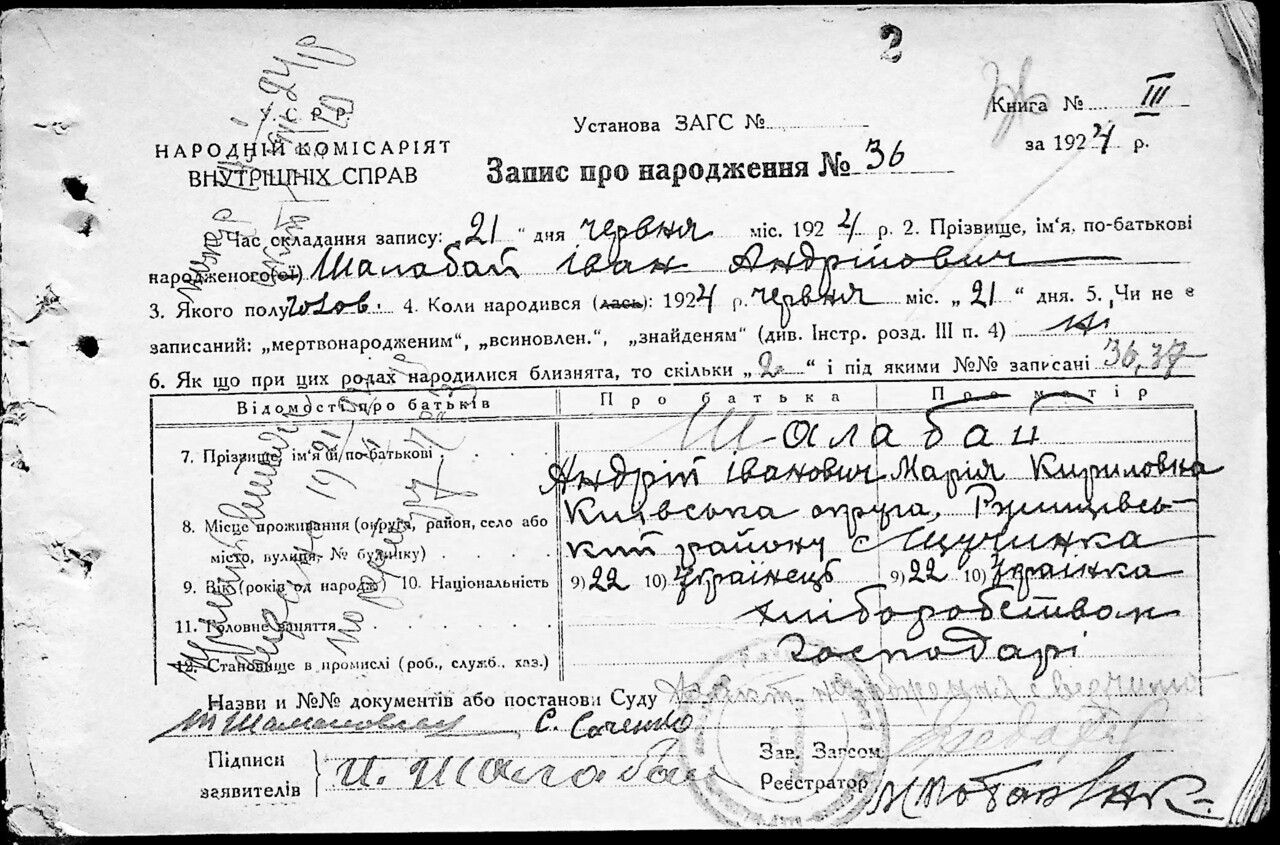 2
У. С. Р. Р.
НАРОДНІЙ КОМІСАРІЯТ
ВНУТРІШНІХ СПРАВ
Установа ЗАГС №
Книга № III
за 1924 р.
Запис про народження № 36
Час складання запису: „21“ дня червня міс. 1924 р. 2. Прізвище, ім'я, по-батькові
народженого(ої) Шалабай іван Андрійович
3. Якого полу чолов. 4. Коли народився (лась): 1924 р. червня міс. „21“ дня. 5. Чи не є
записаний: „мертвонародженим“, „всиновлен.“, „знайденям“ (див. Інстр. розд. III п. 4) ні
6. Як що при цих родах народилися близнята, то скільки „2“ і під якими №№ записані 36, 37
Відомості про батьків Про батька Про матір
Шалабай
7. Прізвище, ім'я й по-батькові
Андрій іванович Марія Кириловна
8. Місце проживання (округа, район, село або
місто, вулиця, № будинку)
Київська округа, Ржищівсь-
кий району с Щучинка
9. Вік (років од народж) 10. Національність 9) 22 10) Українець 9) 22 10) Українка
11. Головне заняття хліборобством
12. Становище в промислі (роб., служб., хаз.) Господарі
Назви и №№ документів або постанови Суду
С. Саченко
Підписи
заявителів
И. Шалабай
Зав. Загсом
Реєстратор